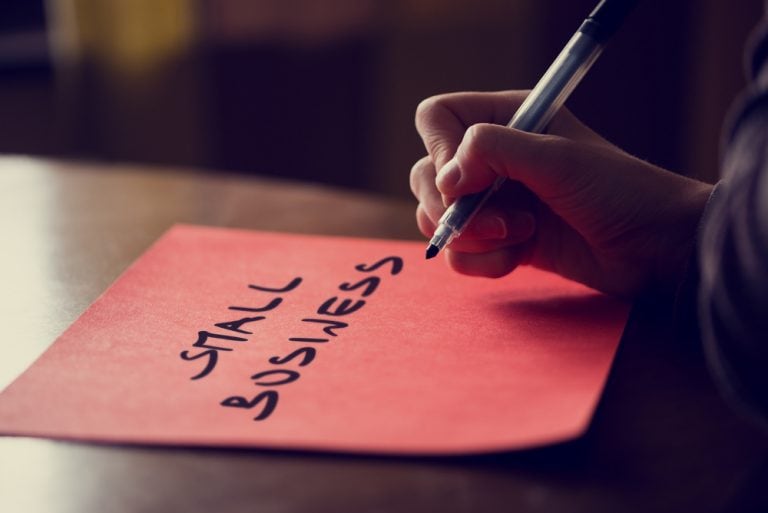 SMALL
BUSINESS